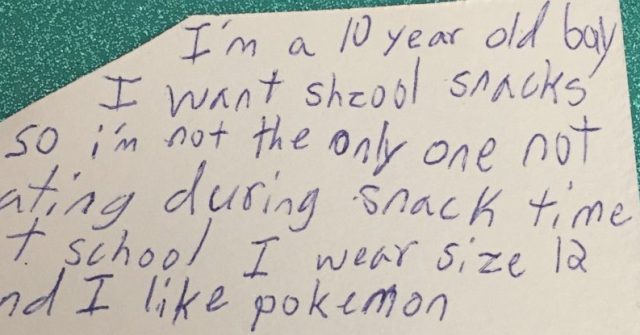 I'm a 10 year old boy
I want shcool snacks
so i'm not the only one not
ating during snack time
t school I wear size 12
nd I like pokemon